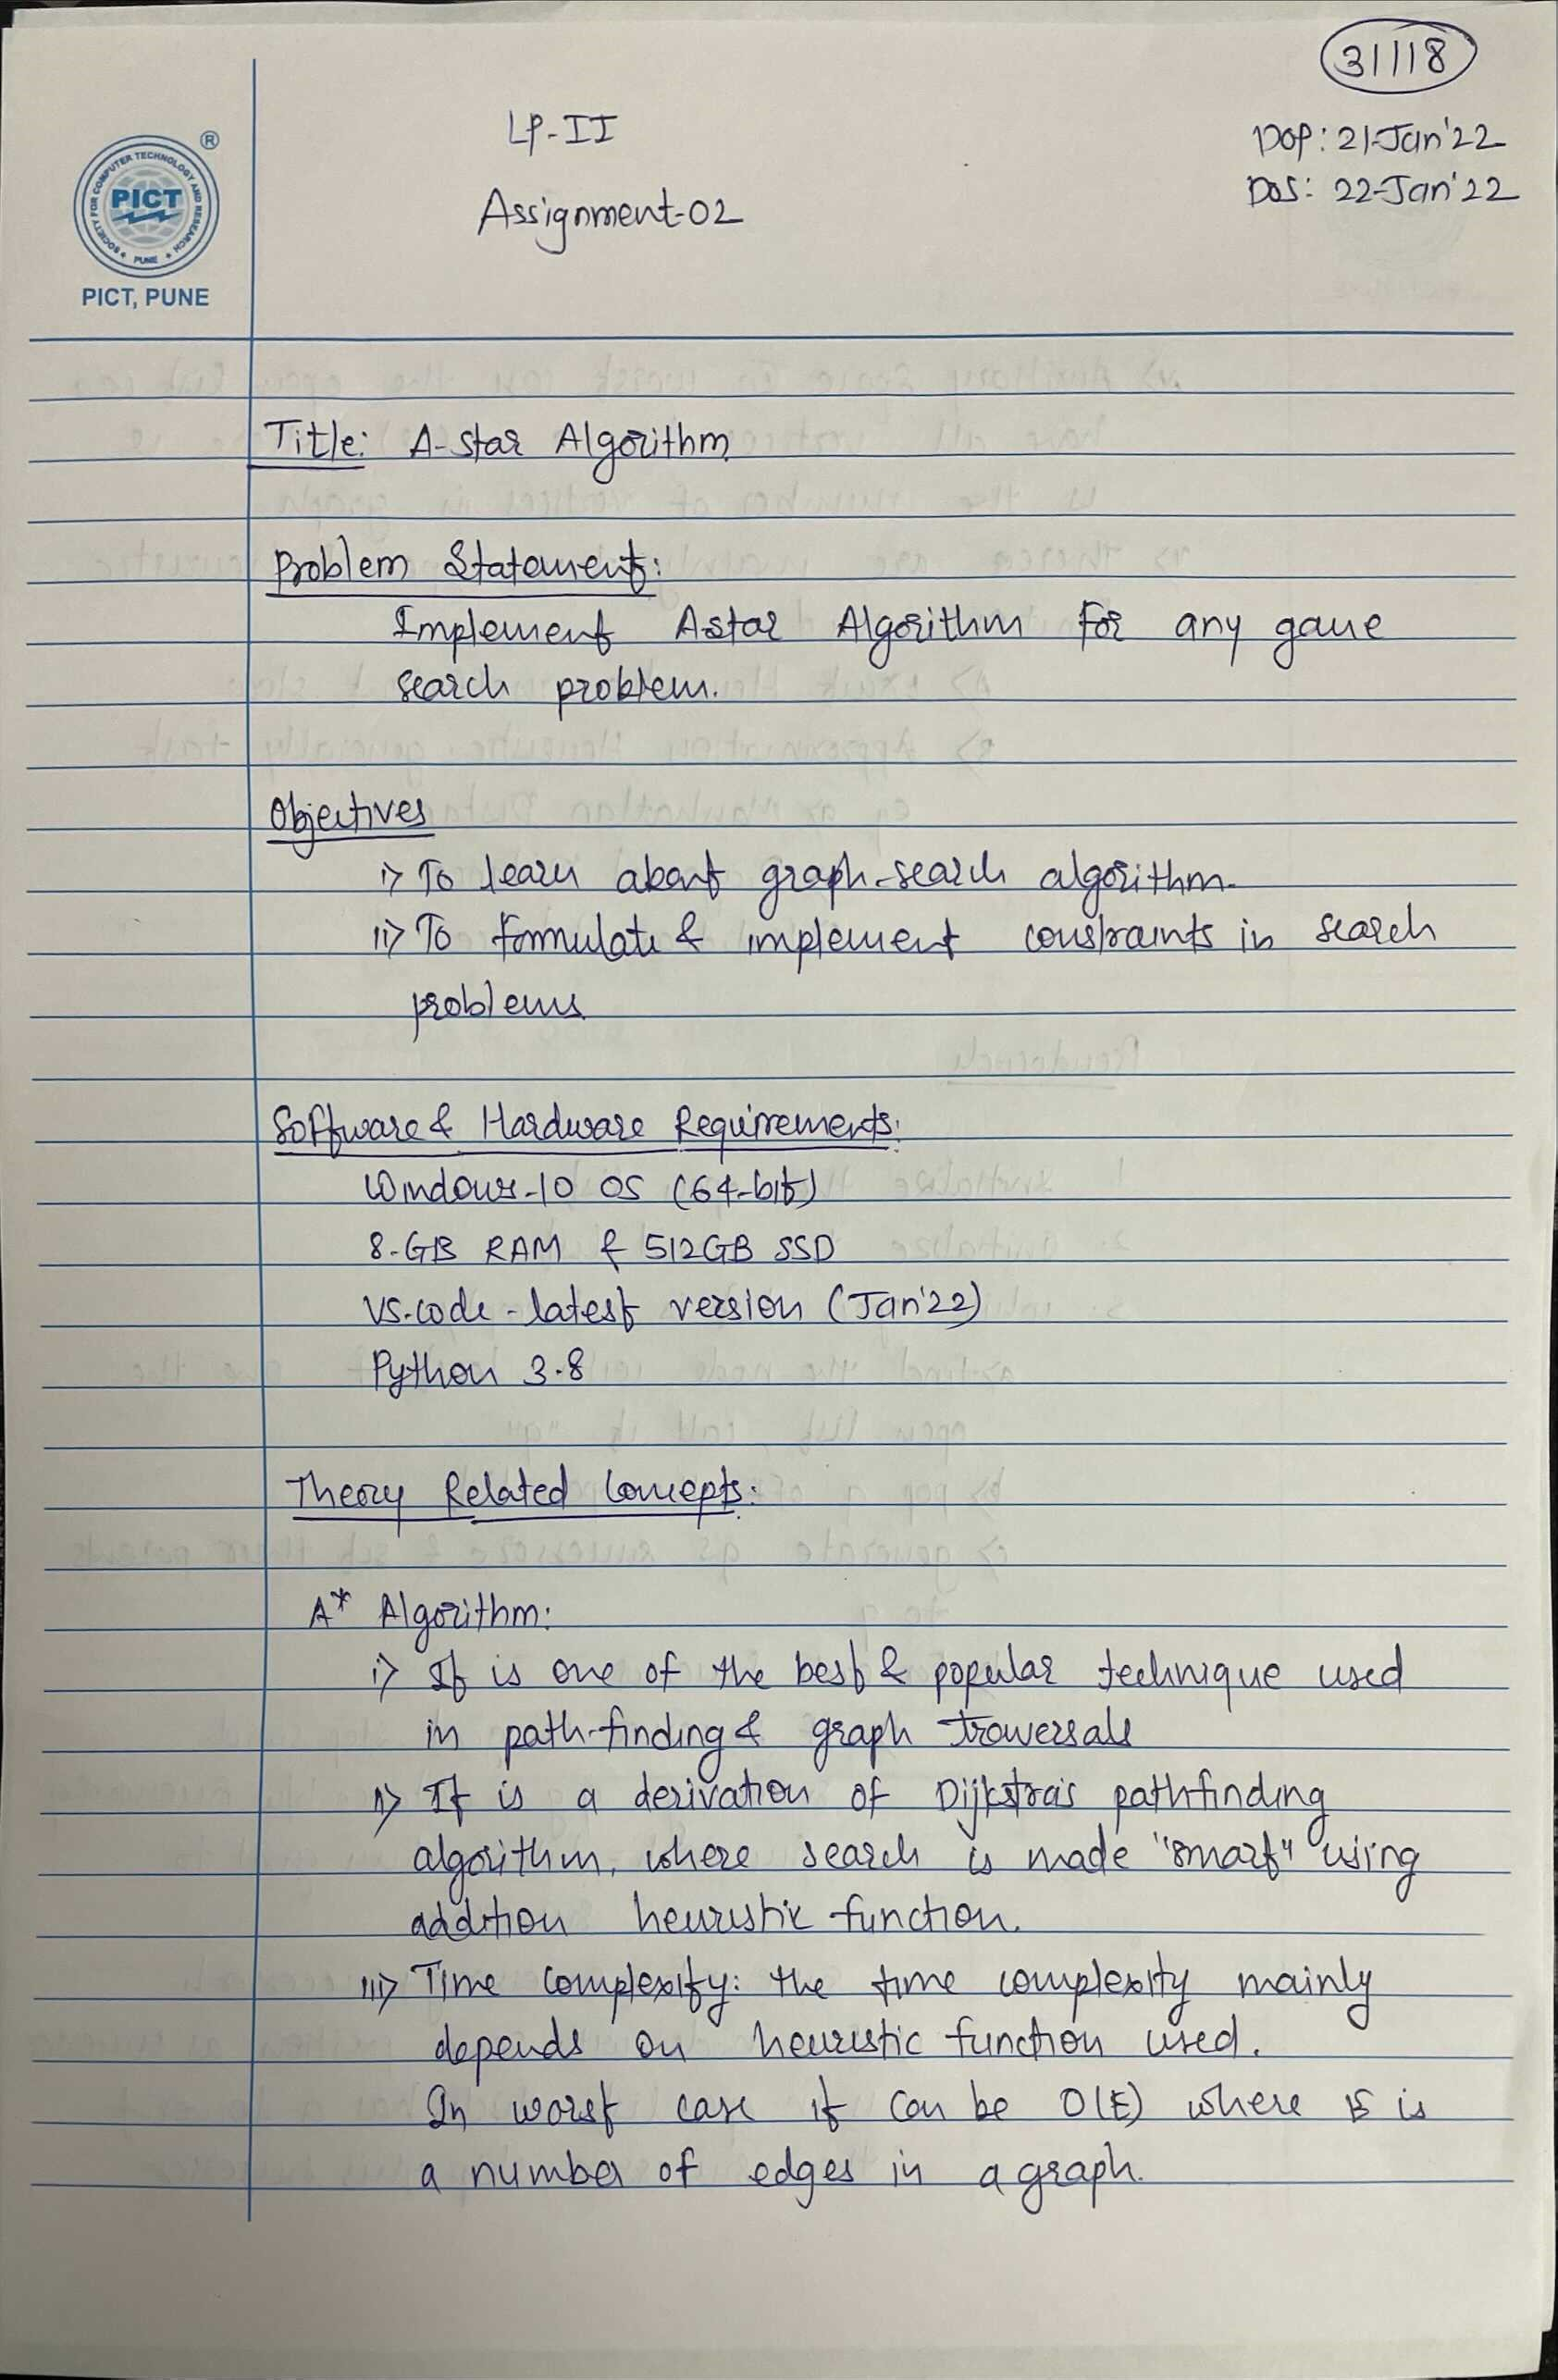 31118
LP-II
DOP: 21-Jan'22
Assignment-02
DOS: 22-Jan'22
®
SOCIETY FOR COMPUTER TECHNOLOGY AND RESEARCH
PICT
PUNE
PICT, PUNE
Title: A-star Algorithm
Problem Statement:
Implement Astar Algorithm for any game
search problem.
Objectives
i> To learn about graph-search algorithm.
ii> To formulate & implement constraints in search
problems
Software & Hardware Requirements:
Windows-10 OS (64-bit)
8-GB RAM & 512GB SSD
VS-code - latest version (Jan'22)
Python 3.8
Theory Related Concepts:
A* Algorithm:
i> It is one of the best & popular technique used
in path-finding & graph traversals
ii> It is a derivation of Dijkstra's pathfinding
algorithm, where search is made "smart" using
addition heuristic function.
iii> Time Complexity: the time complexity mainly
depends on heuristic function used.
In worst case it can be O(E) where E is
a number of edges in a graph.